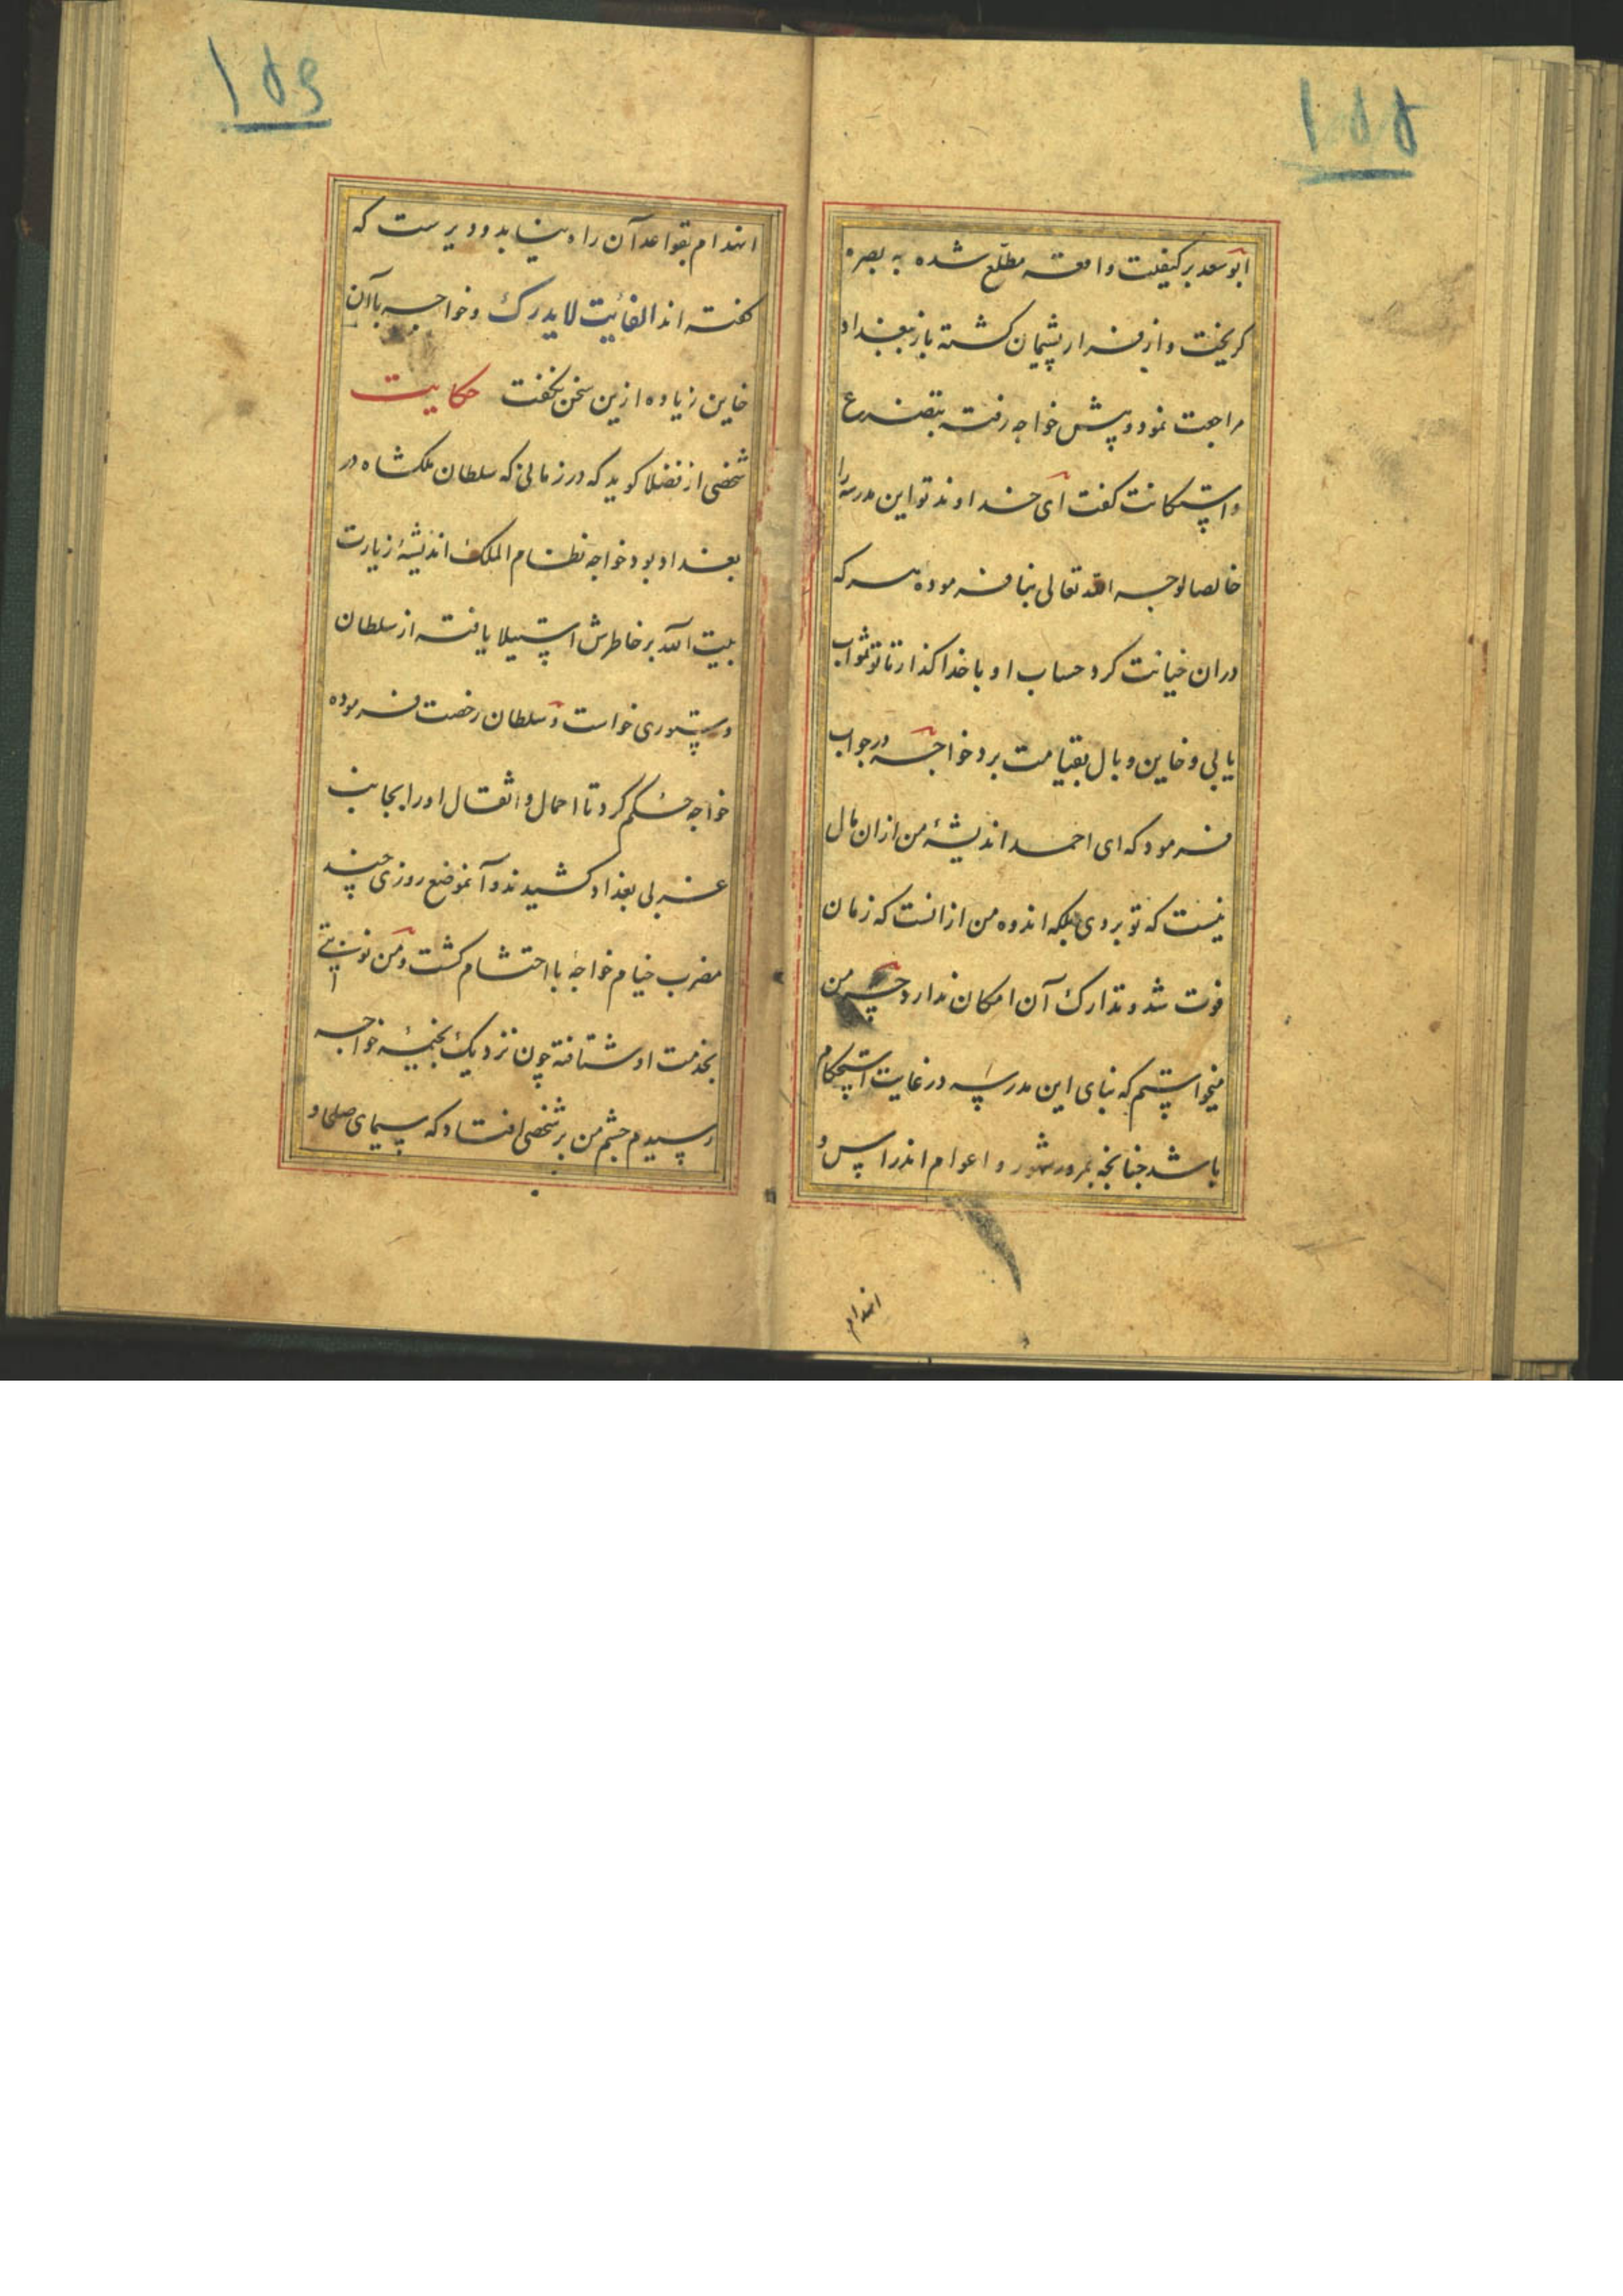 ۱۵۵
ابو سعد بر کیفیت واقعه مطلع شده به بصره
کریخت و از فرار پشیمان کشته باز ببغداد
مراجت نمود و پیش خواجه رفته بتضرع
و استکانت کفت ای خداوند تو این مدرسه را
خالصا لوجه الله تعالی بنا فرموده هر که
دران خیانت کرد حساب او با خدا کذار تا تو ثواب
یابی و خاین وبال بقیامت برد خواجه در جواب
فرمود که ای احمد اندیشهٔ من ازان مال
نیست که تو بردی بلکه اندوه من از انست که زمان
فوت شد و تدارک آن امکان ندارد چه من
میخواستم که بنای این مدرسه در غایت استحکام
باشد چنانچه بمرور شهور و اعوام اندراس و
انهدام
۱۵۶
انهدام بقواعد آن راه نیابد و دیرست که
کفته اند الفائیت لا یدرک و خواجه با آن
خاین زیاده ازین سخن نکفت حکایت
شخصی از فضلا کوید که در زمانی که سلطان ملکشاه در
بغداد بود خواجه نظام الملک اندیشهٔ زیارت
بیت الله بر خاطرش استیلا یافته از سلطان
دستوری خواست و سلطان رخصت فرموده
خواجه حکم کرد تا احمال و اثقال او را بجانب
غربی بغداد کشیدند و آنموضع روزی چند
مضرب خیام خواجهٔ با احتشام کشت و من نوبتی
بخدمت او شتافته چون نزدیک بخیمهٔ خواجه
رسیدم چشم من بر شخصی افتاد که سیمای صلحا و